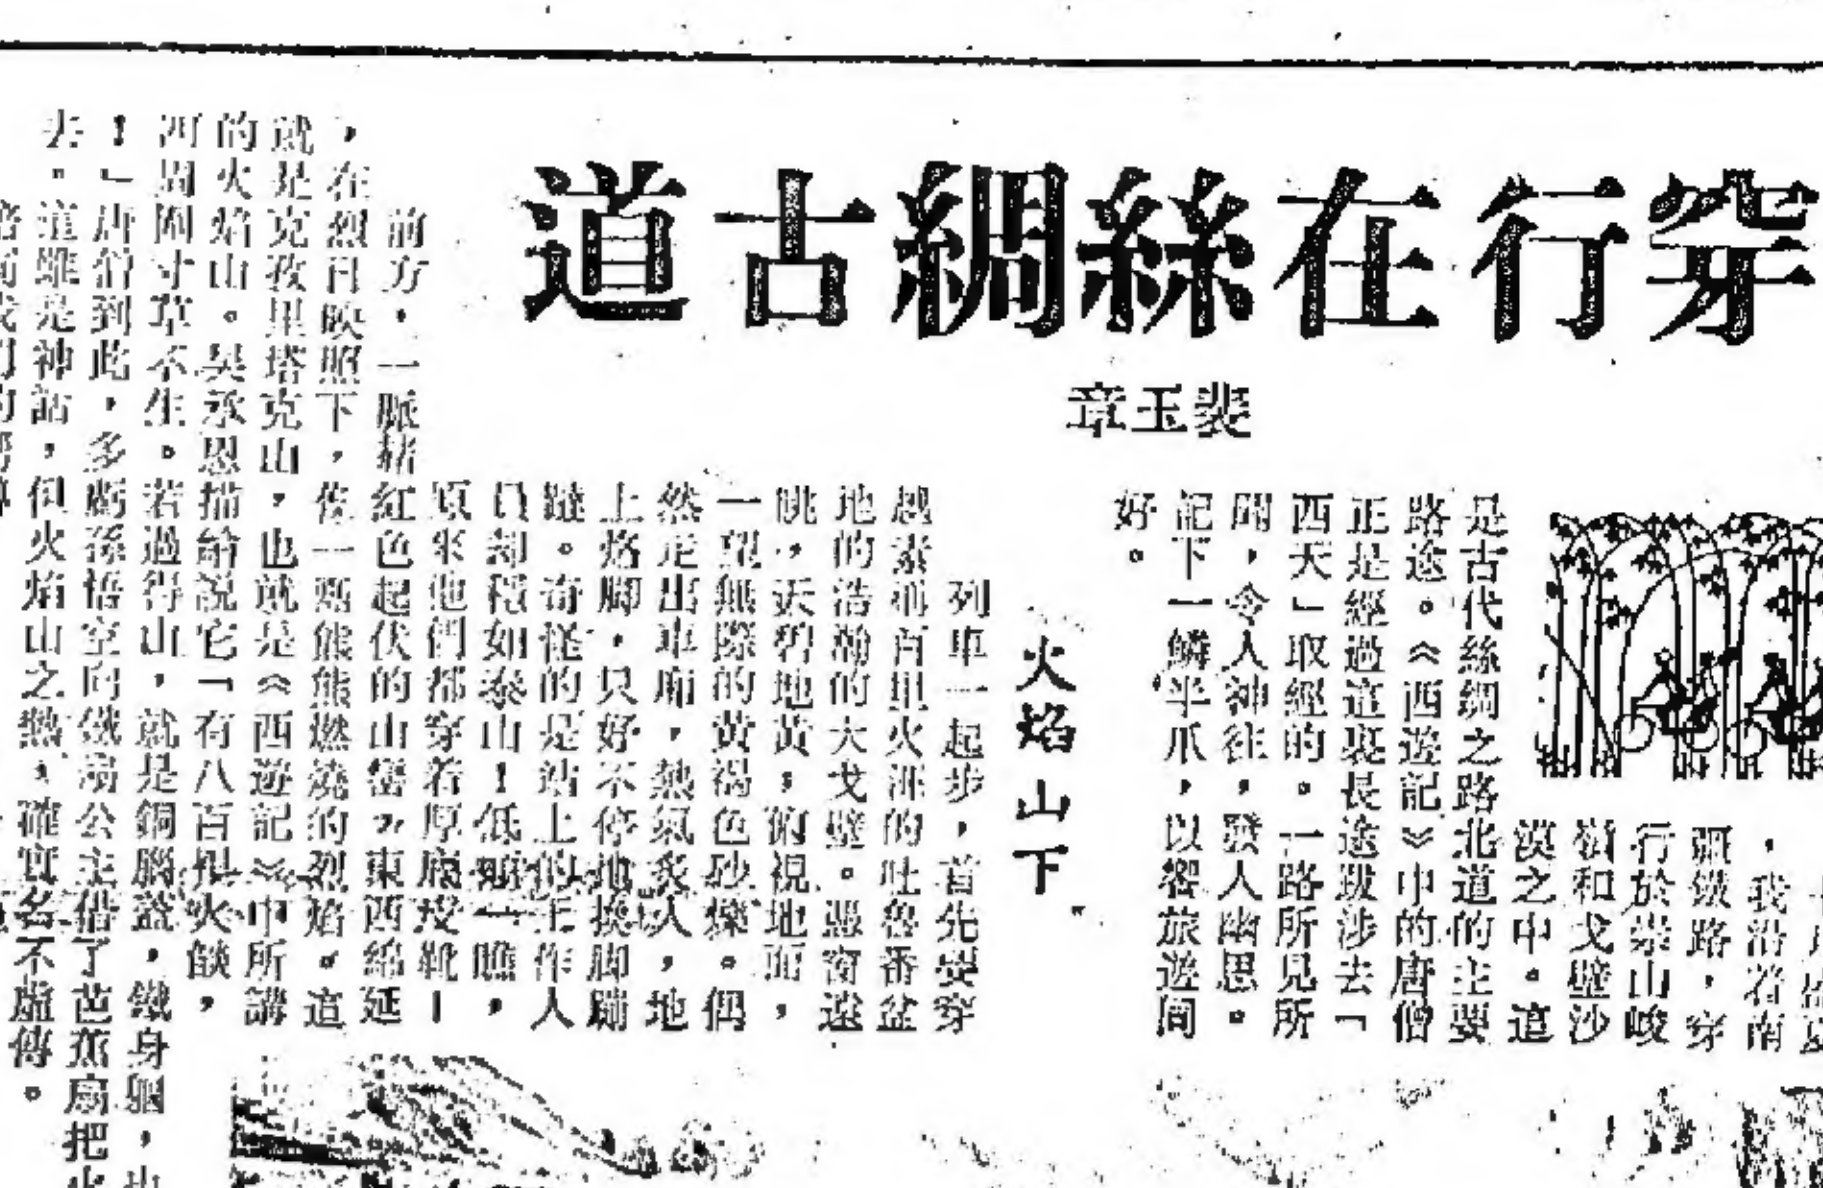 穿行在絲綢古道
裴玉章
盛夏
，我沿着南
疆鐵路，穿
行於崇山峻
嶺和戈壁沙
漠之中。這
是古代絲綢之路北道的主要
路途。《西遊記》中的唐僧
正是經過這裏長途跋涉去「
西天」取經的。一路所見所
聞，令人神往，發人幽思。
記下一鱗半爪，以饗旅遊同
好。
火焰山下
列車一起步，首先要穿
越素稱百里火洲的吐魯番盆
地的浩瀚的大戈壁。憑窗遠
眺，天碧地黃，俯視地面，
一望無際的黃褐色砂爍。偶
然走出車廂，熱氣炙人，地
上烙脚，只好不停地換脚蹦
。奇怪的是站上的工作人
員却穩如泰山！低頭一瞧，
原來他們都穿着厚底皮靴！
前方，一脈赭紅色起伏的山巒，東西綿延
，在烈日映照下，像一團熊熊燃燒的烈焰。這
就是克孜里塔克山，也就是《西遊記》中所講
的火焰山。吳承恩描給說它「有八百里火燄，
周圍寸草不生。若過得山，就是銅腦蓋，鐵身軀，也
！」唐僧到此，多虧孫悟空向鐵扇公主借了芭蕉扇把火
去。這雖是神話，但火焰山之熱，確實名不虛傳。